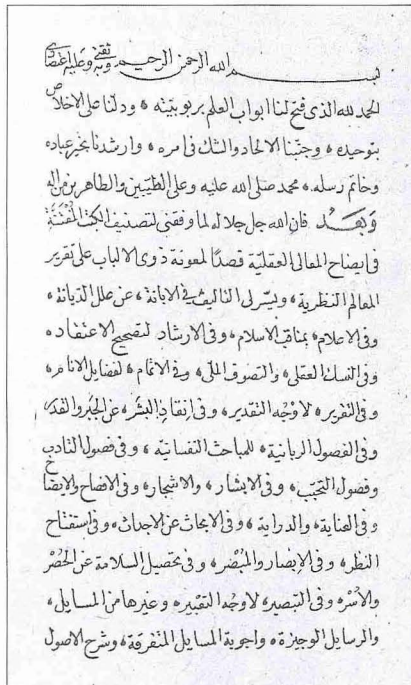 بسم الله الرحمن الرحيم وبه ثقتي وعليه اعتمادي
الحمد لله الذي فتح لنا ابواب العلم بربوبيته، ودلنا على الاخلاص
بتوحيده، وجنبنا الالحاد والشك في امره، وارشدنا بخير عباده
وخاتم رسله، محمد صلى الله عليه وعلى الطيبين والطاهرين من اله
وبعد فان الله جل جلاله لما وفقني لتصنيف الكتب المفننة
في ايضاح المعاني العقلية قصدا لمعونة ذوى الالباب على تقرير
المعالم النظرية، ويسر لى التاليف في الابانة، عن علل الديانة،
وفي الاعلام، بمناقب الاسلام، وفي الارشاد لتصحيح الاعتقاد،
وفي النسك العقلى، والتصوف الملى، وفي الاتمام، لفضايل الانام،
وفي التقرير، لاوجه التقدير، وفي انقاذ البشر، عن الجبر والقدر،
وفي الفصول الربانية، للمباحث النفسانية، وفي فصول التادب
وفصول التحبب، وفي الابشار، والاشجار، وفي الافصاح والايضاح
وفي العناية، والدراية، وفي الابحاث عن الاحداث، وفي استفتاح
النظر، وفي الابصار والمبصر، وفي تحصيل السلامة عن الحصر
والاسر، وفي التبصير، لاوجه التعبير، وغيرها من المسايل،
والرسايل الوجيزة، واجوبة المسايل المتفرقة، وشرح الاصول